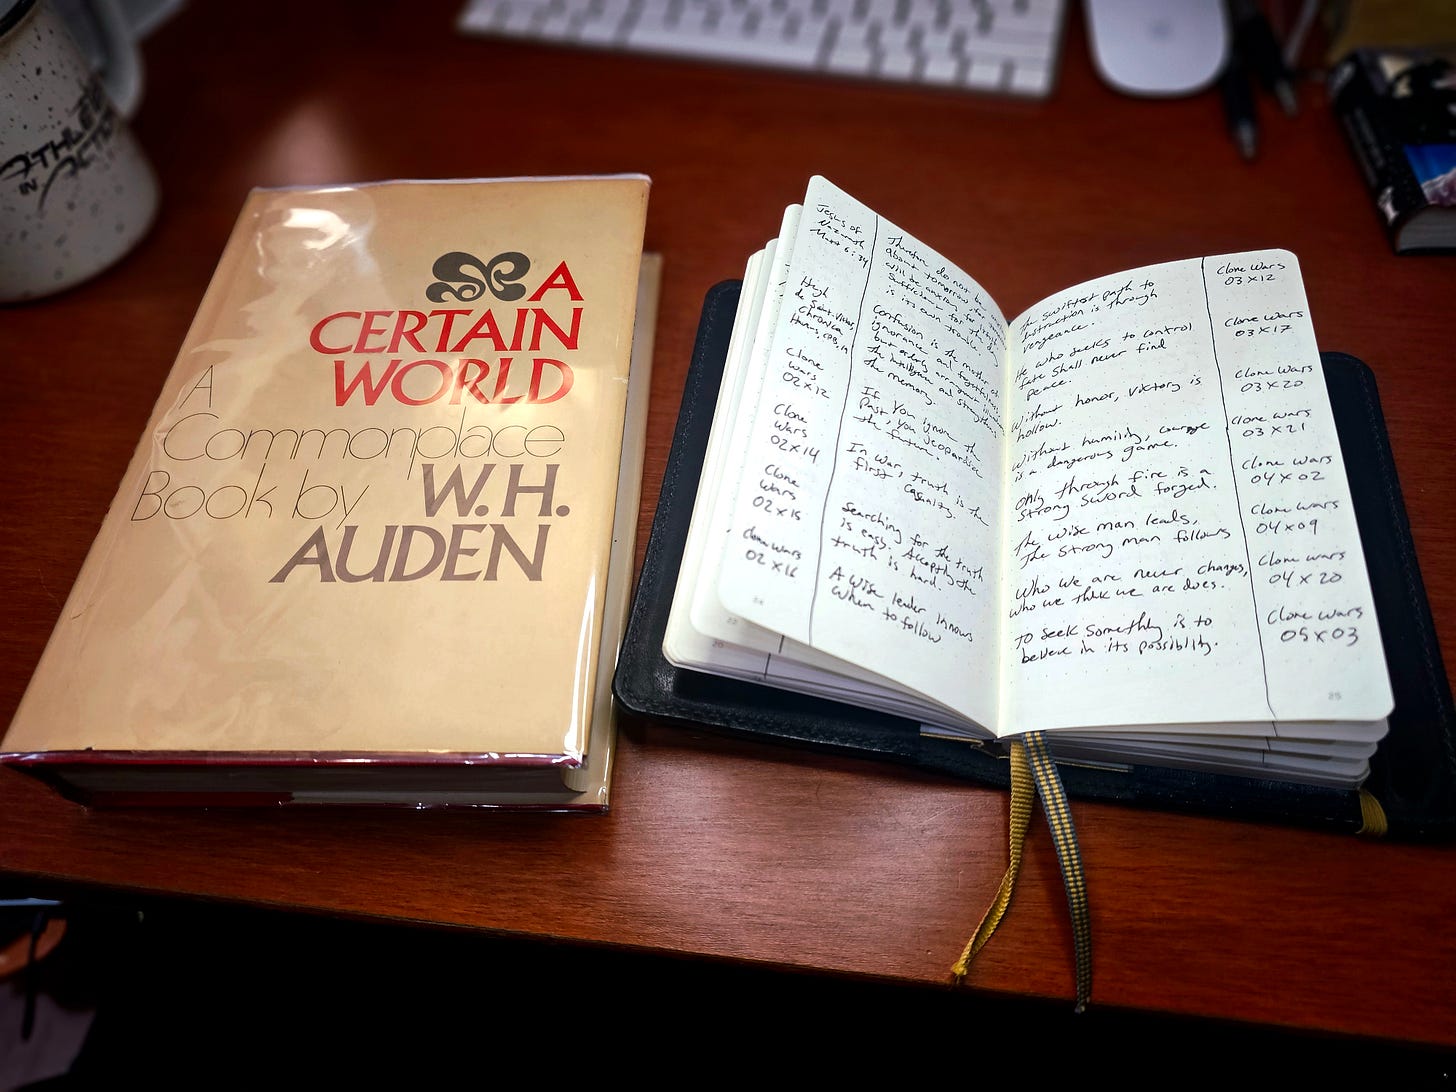 ATHLETE
IN
ACTIO
A
CERTAIN
WORLD
A
Commonplace
Book by W.H.
AUDEN
Jesus of
Nazareth
6:34
Therefore do not be
about tomorrow, for
will be anxious for itself
Sufficient for the
is its own
Hugh
de Saint-Victor,
Chronica
Confusion is the mother of
ignorance and forgetfulness,
but orderly
the and strengthens
the memory
Clone
Wars
02x12
If you ignore the
Past, you jeopardize
the future.
Clone
Wars
02x14
In War, truth is the
first casualty.
Clone
Wars
02x15
Searching for the truth
is easy. Accepting the
truth is hard.
Clone Wars
02x16
A Wise leader knows
When to follow
24
22
20
The Swiftest path to
destruction is through
vengeance.
Clone Wars
03x12
He who seeks to control
fate Shall never find
peace.
Clone Wars
03x17
Without honor, victory is
hollow.
Clone Wars
03x20
Without humility, courage
is a dangerous game.
Clone Wars
03x21
Only through fire is a
Strong Sword forged.
Clone Wars
04x02
The Wise man leads,
The Strong man follows
Clone Wars
04x09
Who we are never changes,
who we think we are does.
Clone Wars
04x20
To Seek Something is to
believe in its possibility.
Clone Wars
05x03
25